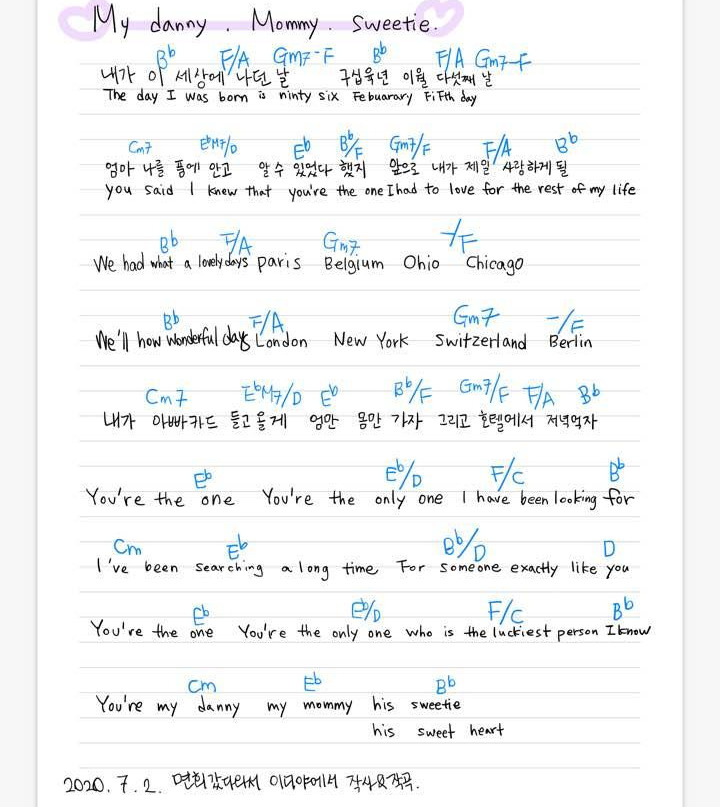 My danny. Mommy. Sweetie.
Bb F/A Gm7-F Bb F/A Gm7-F
내가 이 세상에 나던 날 구십육년 이월 다섯째 날
The day I was born is ninty six Febuarary Fifth day
Cm7 EbM7/D Eb Bb/F Gm7/F F/A Bb
엄마 나를 품에 안고 알 수 있었다 했지 앞으로 내가 제일 사랑하게 될
you said I knew that you're the one I had to love for the rest of my life
Bb F/A Gm7 -/F
We had what a lovely days Paris Belgium Ohio Chicago
Bb F/A Gm7 -/F
We'll how wonderful days London New York Switzerland Berlin
Cm7 EbM7/D Eb Bb/F Gm7/F F/A Bb
내가 아빠카드 들고올게 엄만 몸만 가자 그리고 호텔에서 저녁먹자
Eb Eb/D F/C Bb
You're the one You're the only one I have been looking for
Cm Eb Bb/D D
I've been searching a long time For someone exactly like you
Eb Eb/D F/C Bb
You're the one You're the only one who is the luckiest person I know
Cm Eb Bb
You're my danny my mommy his sweetie
his sweet heart
2020. 7. 2. 면회갔다와서 이디야에서 작사&작곡.